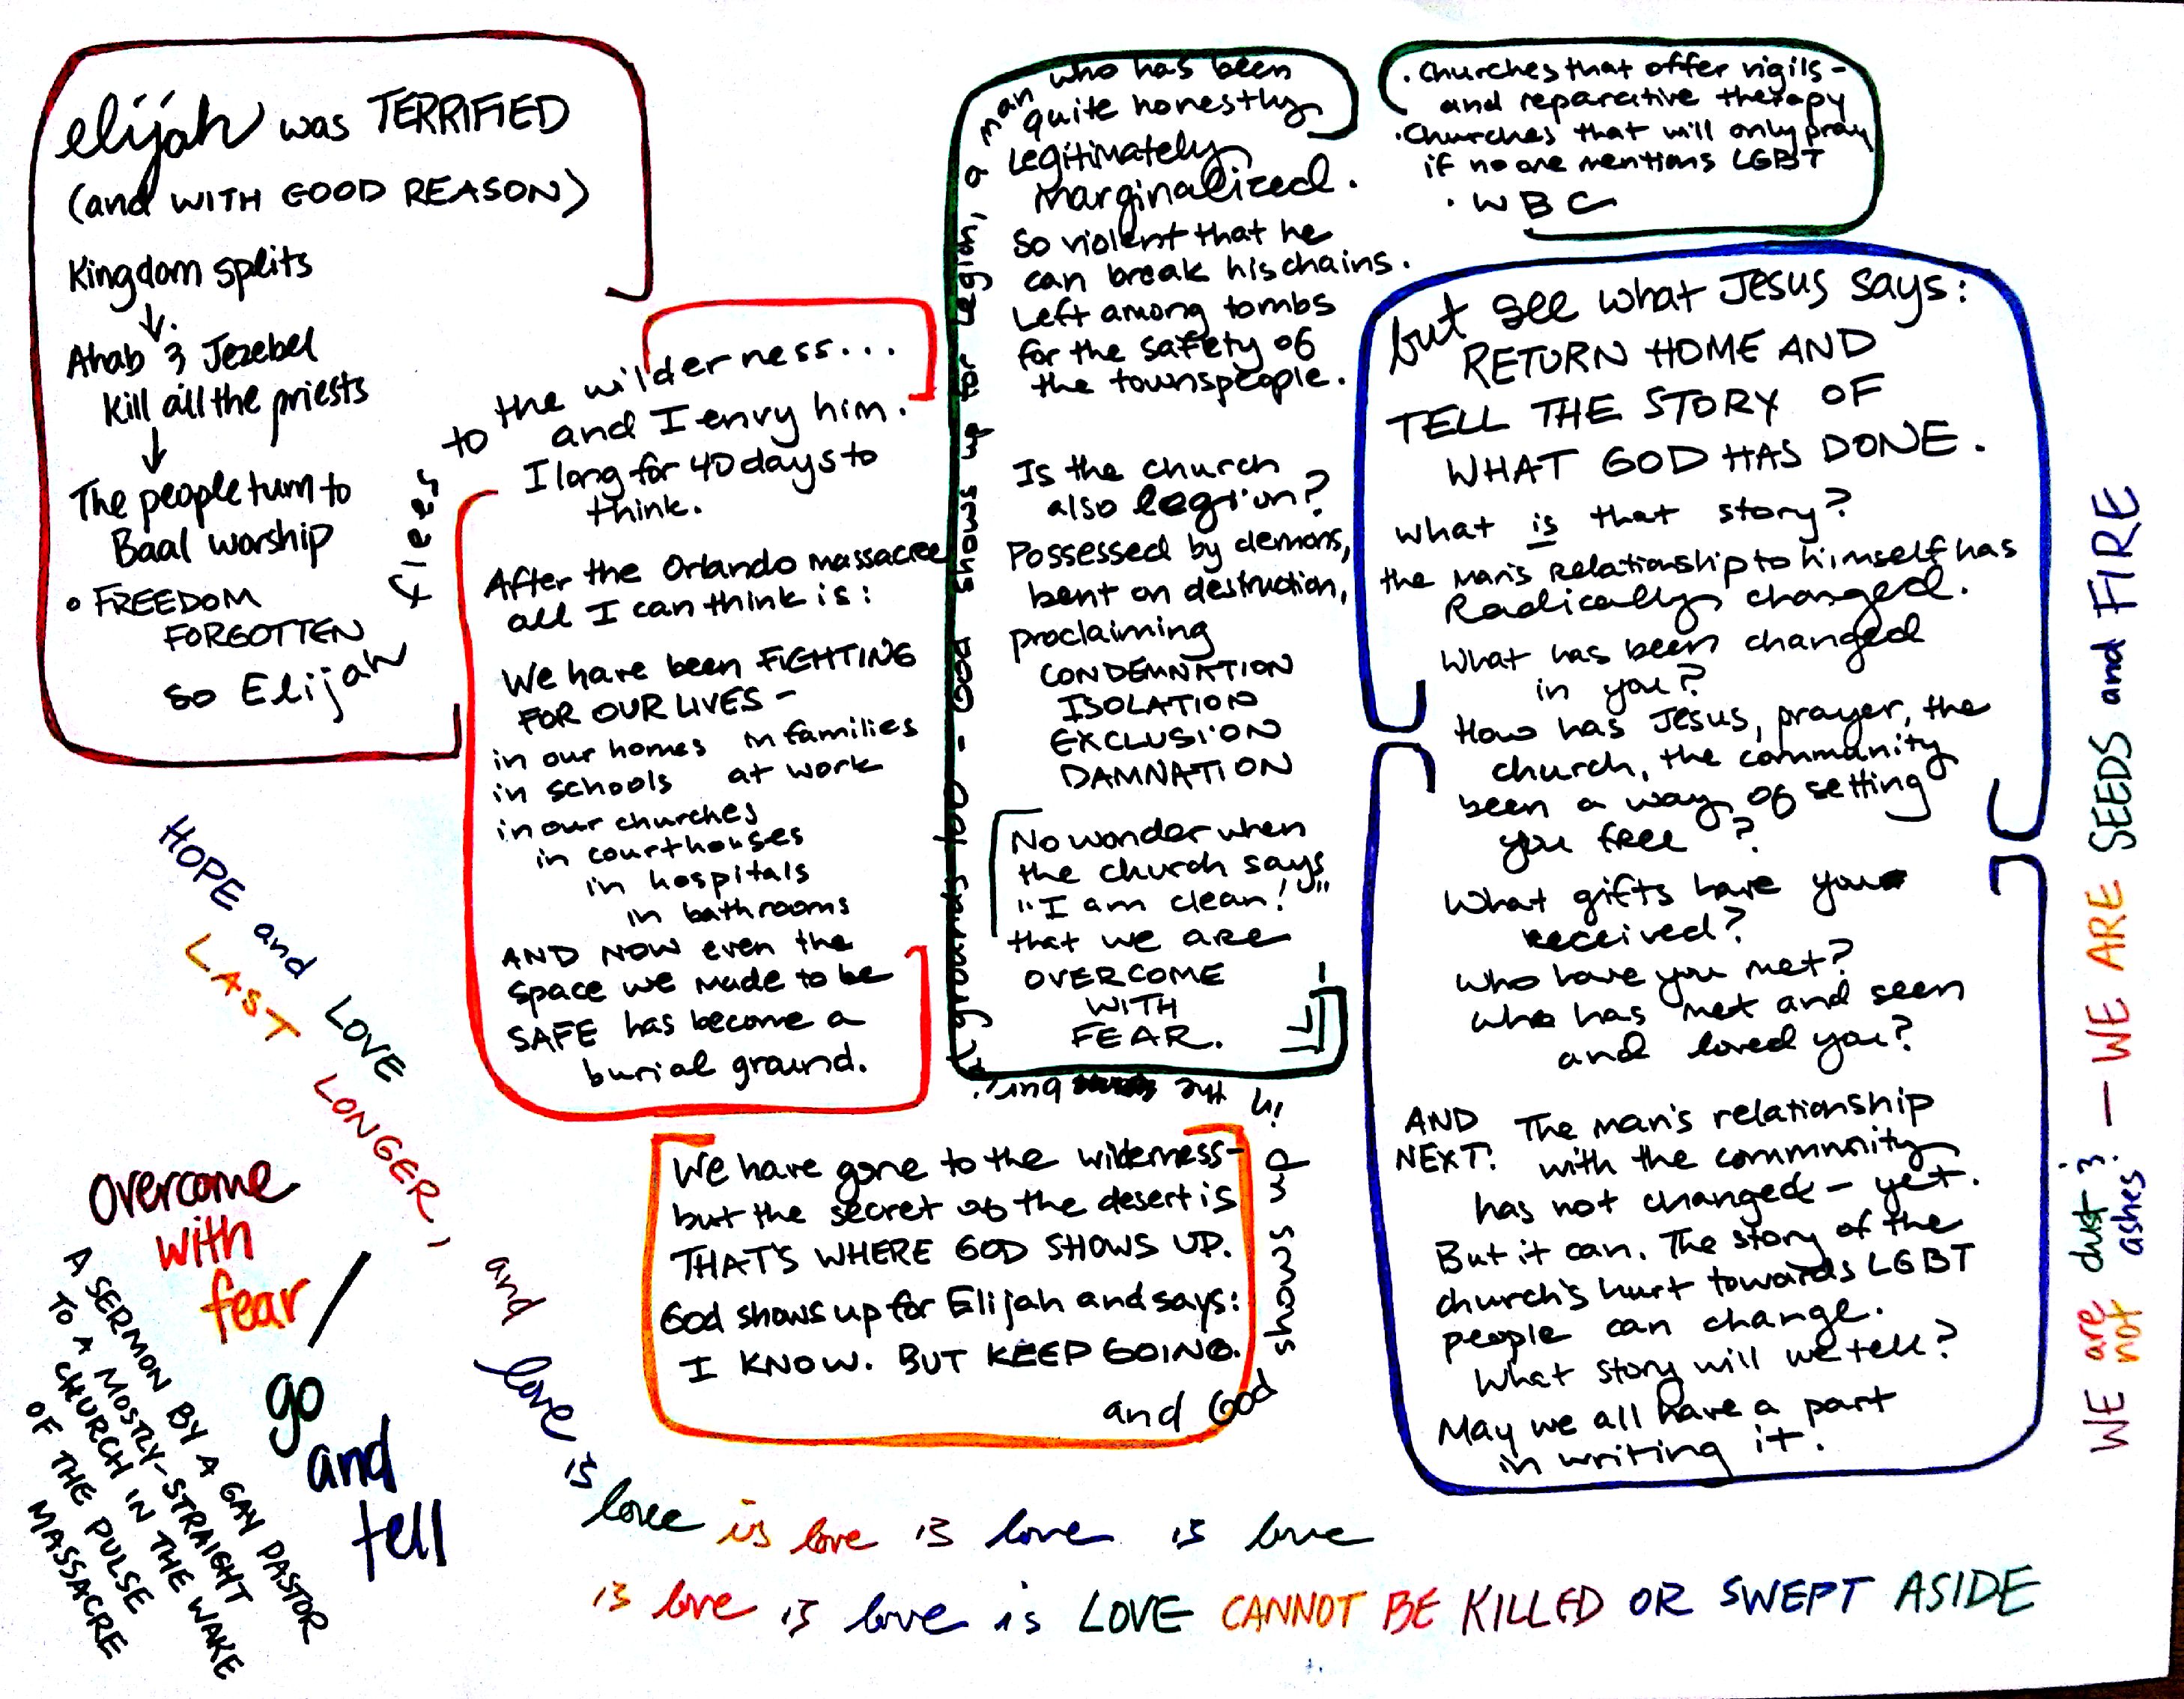 elijah was TERRIFIED
(and WITH GOOD REASON)
Kingdom splits
↓
Ahab & Jezebel
Kill all the priests
↓
The people turn to
Baal worship
• FREEDOM
FORGOTTEN
so Elijah flees to the wilderness...
and I envy him.
I long for 40 days to
think.
After the Orlando massacre
all I can think is:
We have been FIGHTING
FOR OUR LIVES -
in our homes in families
in schools at work
in our churches
in courthouses
in hospitals
in bathrooms
AND NOW even the
space we made to be
SAFE has become a
burial ground.
We have gone to the wilderness-
but the secret of the desert is
THAT'S WHERE GOD SHOWS UP.
God shows up for Elijah and says:
I KNOW. BUT KEEP GOING.
and God shows up
in the burying
grounds too - God shows up for Legion, a man who has been
quite honestly
legitimately
marginalized.
So violent that he
can break his chains.
Left among tombs
for the safety of
the townspeople.
Is the church
also legion?
Possessed by demons,
bent on destruction,
proclaiming
CONDEMNATION
ISOLATION
EXCLUSION
DAMNATION
No wonder when
the church says
"I am clean!"
that we are
OVERCOME
WITH
FEAR.
• Churches that offer vigils -
and reparative therapy
• Churches that will only pray
if no one mentions LGBT
• WBC
but see what Jesus says:
RETURN HOME AND
TELL THE STORY OF
WHAT GOD HAS DONE.
What is that story?
the man's relationship to himself has
Radically changed.
What has been changed
in you?
How has Jesus, prayer, the
church, the community
been a way of setting
you free?
What gifts have you
received?
Who have you met?
who has met and seen
and loved you?
AND
NEXT: The man's relationship
with the community
has not changed - yet.
But it can. The story of the
church's hurt towards LGBT
people can change.
What story will we tell?
May we all have a part
in writing it.
overcome
with
fear /
go
and
tell
A SERMON BY A GAY PASTOR
TO A MOSTLY-STRAIGHT
CHURCH IN THE WAKE
OF THE PULSE
MASSACRE
HOPE and LOVE
LAST LONGER,
and love is love is love is love is love
is love is love is LOVE CANNOT BE KILLED OR SWEPT ASIDE
WE are not dust & ashes. — WE ARE SEEDS and FIRE